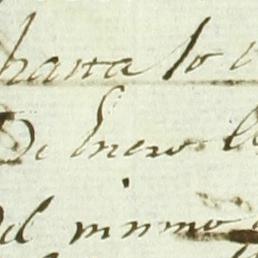 hasta lo
De Enero
del mismo